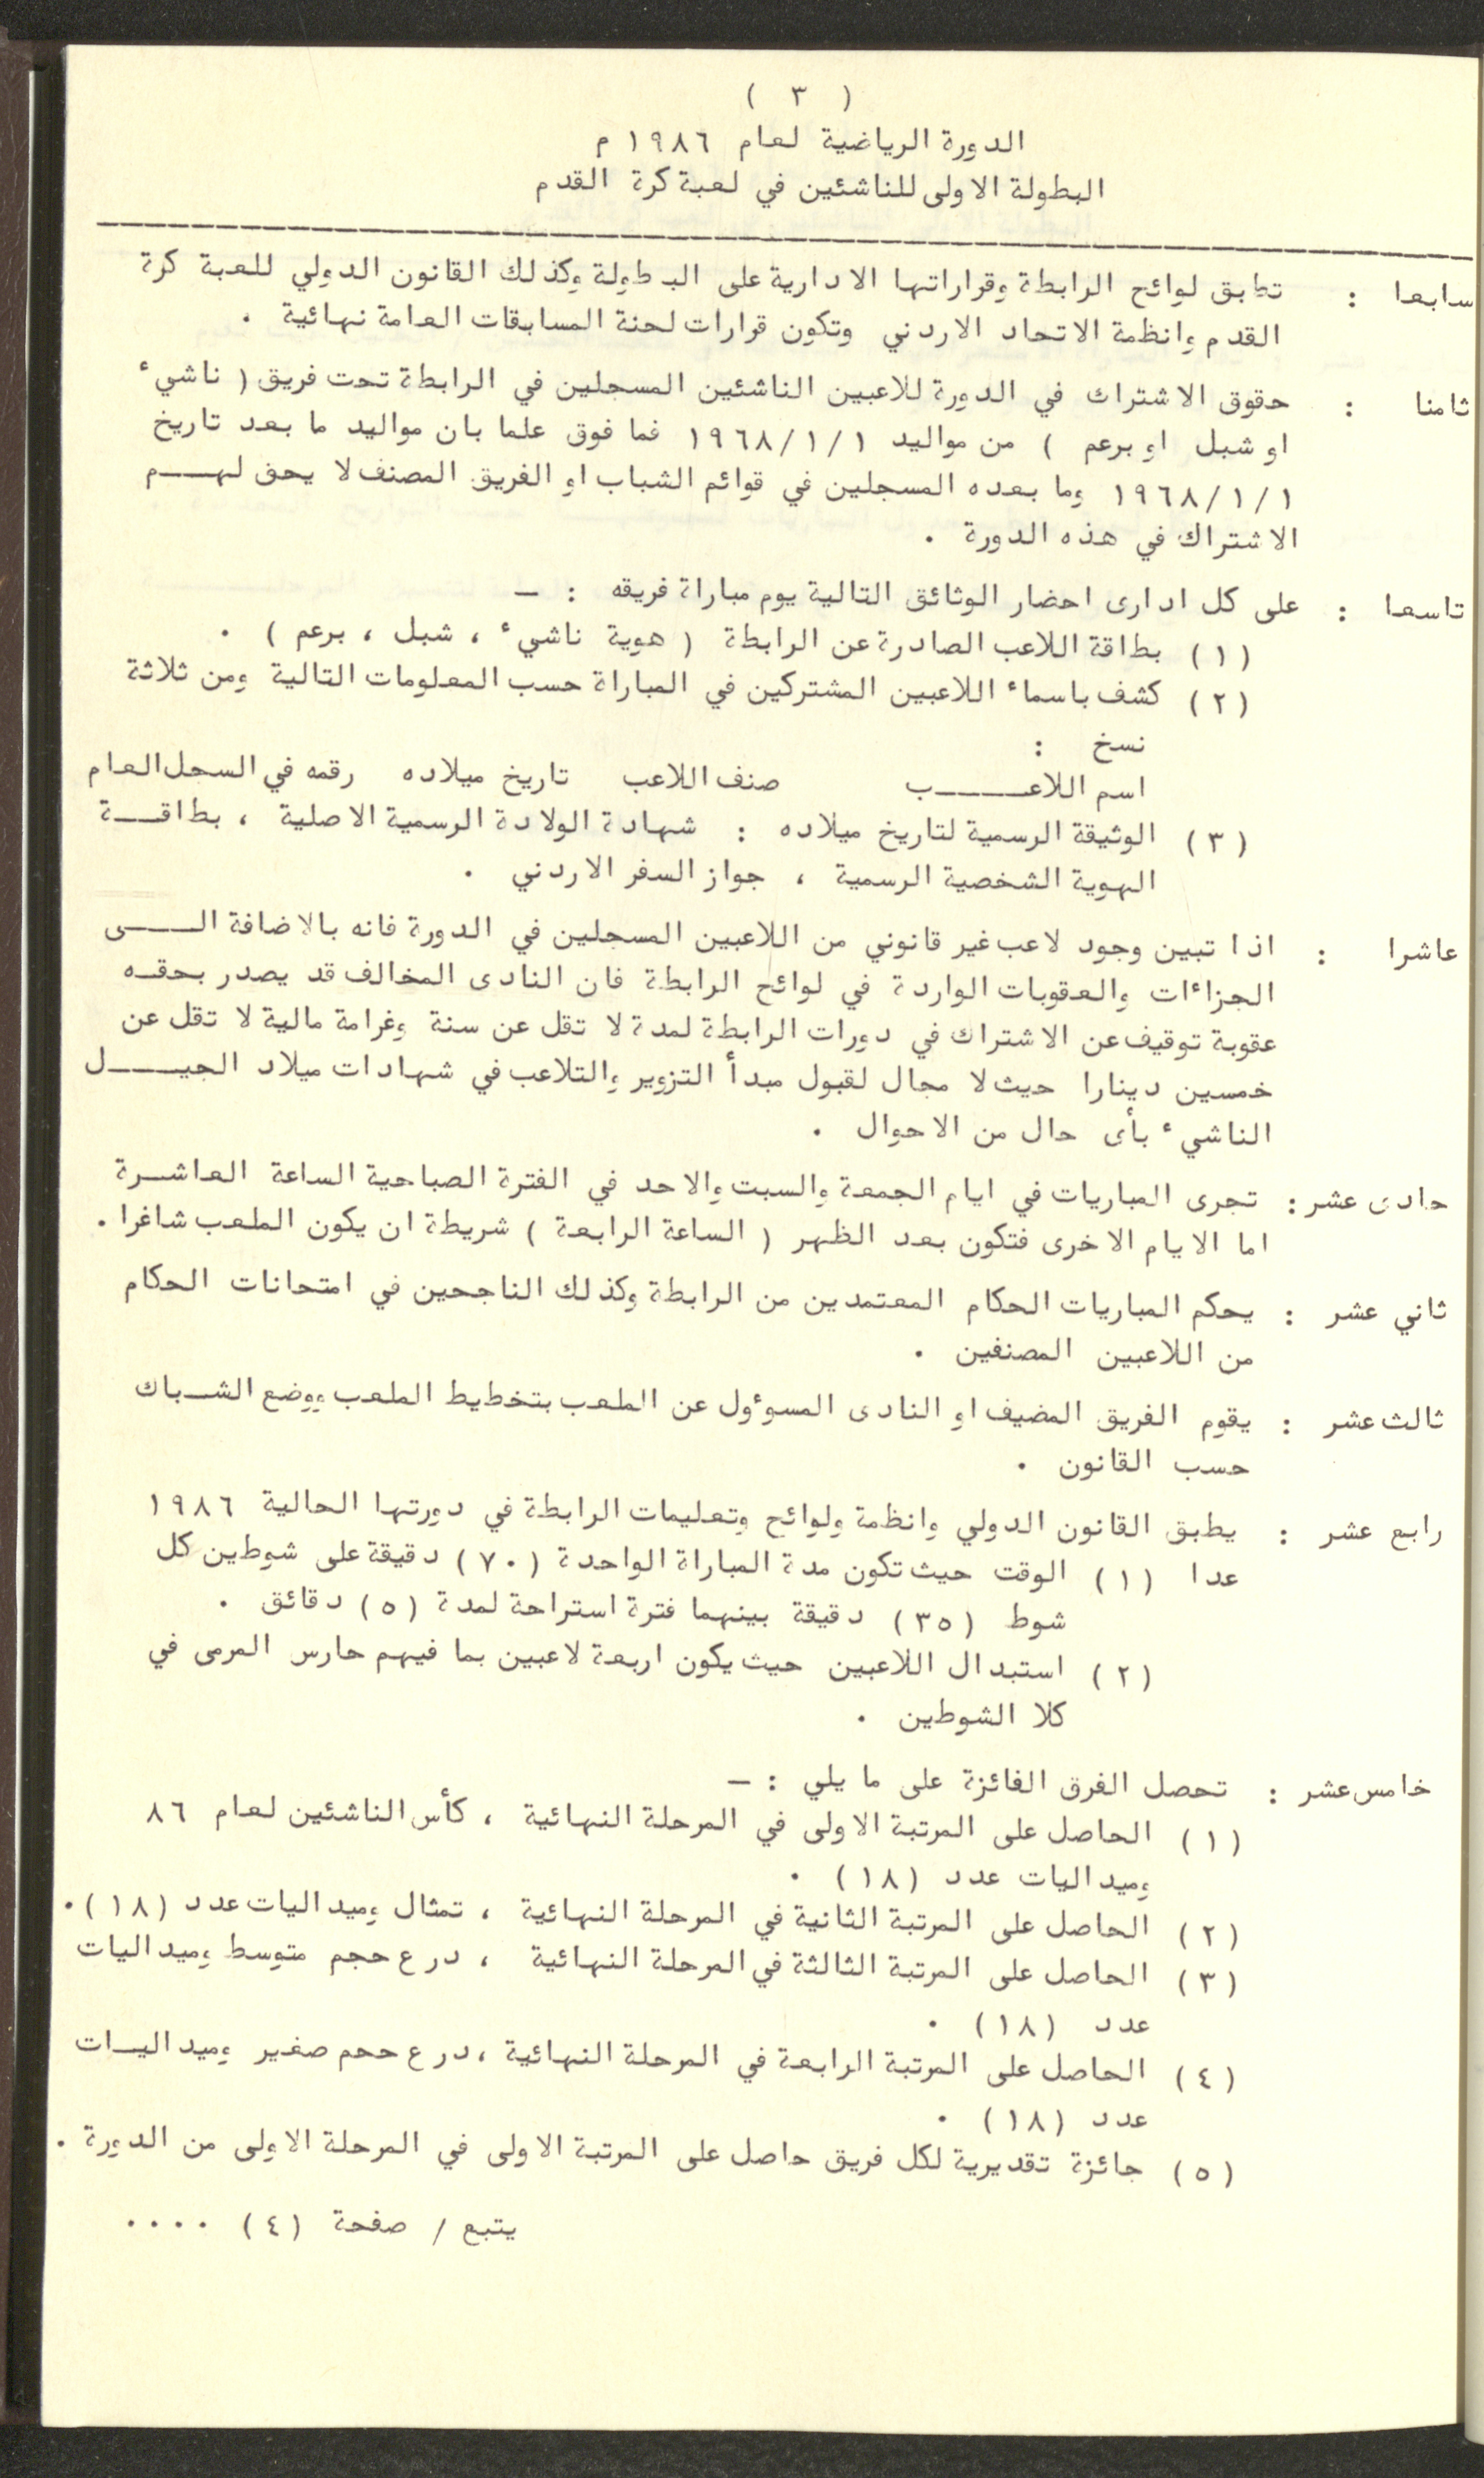 ( ٣ )
الدورة الرياضية لعام ١٩٨٦ م
البطولة الاولى للناشئين في لعبة كرة القدم
سابعا : تطبق لوائح الرابطة وقراراتها الادارية على البطولة وكذلك القانون الدولي للعبة كرة
القدم وانظمة الاتحاد الاردني وتكون قرارات لجنة المسابقات العامة نهائية .
ثامنا : حقوق الاشتراك في الدورة للاعبين الناشئين المسجلين في الرابطة تحت فريق ( ناشيء
او شبل او برعم ) من مواليد ١/١/١٩٦٨ فما فوق علما بان مواليد ما بعد تاريخ
١/١/١٩٦٨ وما بعده المسجلين في قوائم الشباب او الفريق المصنف لا يحق لهـــم
الاشتراك في هذه الدورة .
تاسعا : على كل ادارى احضار الوثائق التالية يوم مباراة فريقه : -
(١) بطاقة اللاعب الصادرة عن الرابطة ( هوية ناشيء ، شبل ، برعم ) .
(٢) كشف باسماء اللاعبين المشتركين في المباراة حسب المعلومات التالية ومن ثلاثة
نسخ :
اسم اللاعـــــب صنف اللاعب تاريخ ميلاده رقمه في السجل العام
(٣) الوثيقة الرسمية لتاريخ ميلاده : شهادة الولادة الرسمية الاصلية ، بطاقــة
الهوية الشخصية الرسمية ، جواز السفر الاردني .
عاشرا : اذا تبين وجود لاعب غير قانوني من اللاعبين المسجلين في الدورة فانه بالاضافة الــــى
الجزاءات والعقوبات الواردة في لوائح الرابطة فان النادى المخالف قد يصدر بحقــه
عقوبة توقيف عن الاشتراك في دورات الرابطة لمدة لا تقل عن سنة وغرامة مالية لا تقل عن
خمسين دينارا حيث لا مجال لقبول مبدأ التزوير والتلاعب في شهادات ميلاد الجيــــل
الناشيء بأى حال من الاحوال .
حادى عشر : تجرى المباريات في ايام الجمعة والسبت والاحد في الفترة الصباحية الساعة العاشــرة
اما الايام الاخرى فتكون بعد الظهر ( الساعة الرابعة ) شريطة ان يكون الملعب شاغرا .
ثاني عشر : يحكم المباريات الحكام المعتمدين من الرابطة وكذلك الناجحين في امتحانات الحكام
من اللاعبين المصنفين .
ثالث عشر : يقوم الفريق المضيف او النادى المسوءول عن الملعب بتخطيط الملعب ووضع الشــباك
حسب القانون .
رابع عشر : يطبق القانون الدولي وانظمة ولوائح وتعليمات الرابطة في دورتها الحالية ١٩٨٦
عدا (١) الوقت حيث تكون مدة المباراة الواحدة (٧٠) دقيقة على شوطين كل
شوط (٣٥) دقيقة بينهما فترة استراحة لمدة (٥) دقائق .
(٢) استبدال اللاعبين حيث يكون اربعة لاعبين بما فيهم حارس المرمى في
كلا الشوطين .
خامس عشر : تحصل الفرق الفائزة على ما يلي : -
(١) الحاصل على المرتبة الاولى في المرحلة النهائية ، كأس الناشئين لعام ٨٦
وميداليات عدد (١٨) .
(٢) الحاصل على المرتبة الثانية في المرحلة النهائية ، تمثال وميداليات عدد (١٨) .
(٣) الحاصل على المرتبة الثالثة في المرحلة النهائية ، درع حجم متوسط وميداليات
عدد (١٨) .
(٤) الحاصل على المرتبة الرابعة في المرحلة النهائية ، درع حجم صغير وميداليــات
عدد (١٨) .
(٥) جائزة تقديرية لكل فريق حاصل على المرتبة الاولى في المرحلة الاولى من الدورة .
يتبع / صفحة (٤) ....